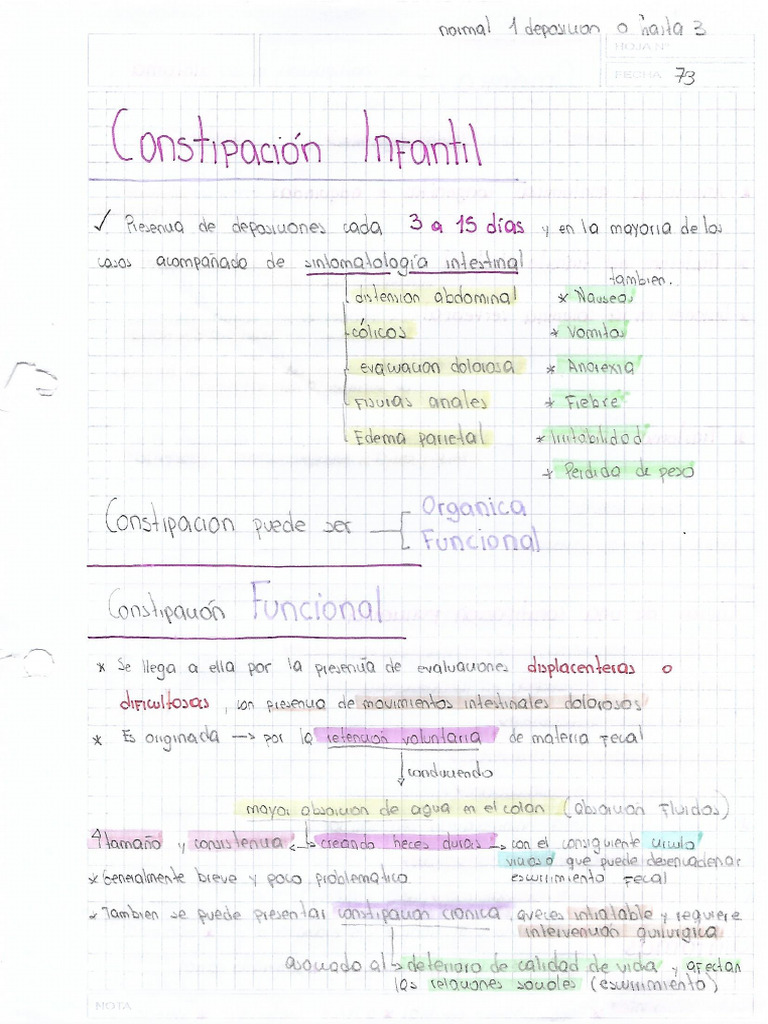 normal 1 deposicion o hasta 3
HOJA Nº
FECHA 73
Constipación Infantil
✓ Presencia de deposiciones cada 3 a 15 días y en la mayoria de los
casos acompañado de sintomatología intestinal
tambien.
distension abdominal * Nauseas
cólicos * Vomitos
evacuacion dolorosa * Anorexia
Fisuras anales * Fiebre
Edema parietal * Irritabilidad
* Perdida de peso
Constipacion puede ser Organica
Funcional
Constipación Funcional
* Se llega a ella por la presencia de evaluaciones displacenteras o
dificultosas, con presencia de movimientos intestinales dolorosos
* Es originada → por la retención voluntaria de materia fecal
↓ conduciendo
mayor absorcion de agua en el colon (absorcion Fluidos)
↑ tamaño y consistencia ↔ creando heces duras → con el consiguiente circulo
vicioso que puede desencadenar
* Generalmente breve y poco problematico escurrimiento Fecal
* Tambien se puede presentar constipacion cronica, aveces intratable y requiere
intervención quirurgica
asociado al → deterioro de calidad de vida y afectan
las relaciones sociales (escurrimiento)
NOTA